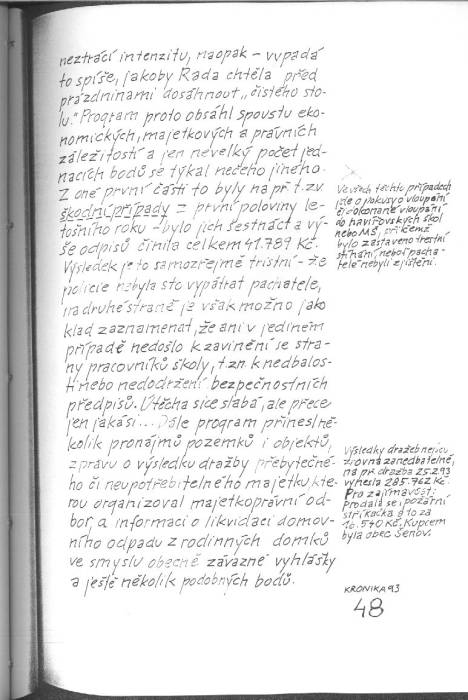 neztrácí intenzitu, naopak – vypadá
to spíše, jakoby Rada chtěla před
prázdninami dosáhnout „čistého sto-
lu." Program proto obsáhl spoustu eko-
nomických, majetkových a právních
záležitostí a jen nevelký počet jed-
nacích bodů se týkal něčeho jiného.
Z oné první části to byly na př. t.zv.
škodní případy z první poloviny le-
tošního roku – bylo jich šestnáct a vý-
še odpisů činila celkem 41.789 Kč.
Výsledek je to samozřejmě tristní – že
policie nebyla sto vypátrat pachatele,
na druhé straně je však možno jako
klad zaznamenat, že ani v jediném
případě nedošlo k zavinění se stra-
ny pracovníků školy, t.zn. k nedbalos-
ti nebo nedodržení bezpečnostních
předpisů. Útěcha sice slabá, ale přece
jen jakási... Dále program přinesl ně-
kolik pronájmů pozemků i objektů,
zprávu o výsledku dražby přebytečné-
ho či neupotřebitelného majetku, kte-
rou organizoval majetkoprávní od-
bor, a informaci o likvidaci domov-
ního odpadu z rodinných domků
ve smyslu obecně závazné vyhlášky
a ještě několik podobných bodů.
Ve všech těchto případech
jde o pokusy o vloupání
či dokonané vloupání
do havířovských škol
nebo MŠ, přičemž
bylo zastaveno trestní
stíhání, neboť pacha-
telé nebyli zjištěni.
Výsledky dražeb nejsou
zrovna zanedbatelné,
na př. dražba 25.2.93
vynesla 285.762 Kč.
Pro zajímavost:
prodala se i požární
stříkačka a to za
16.540 Kč. Kupcem
byla obec Šenov.
KRONIKA 93
48